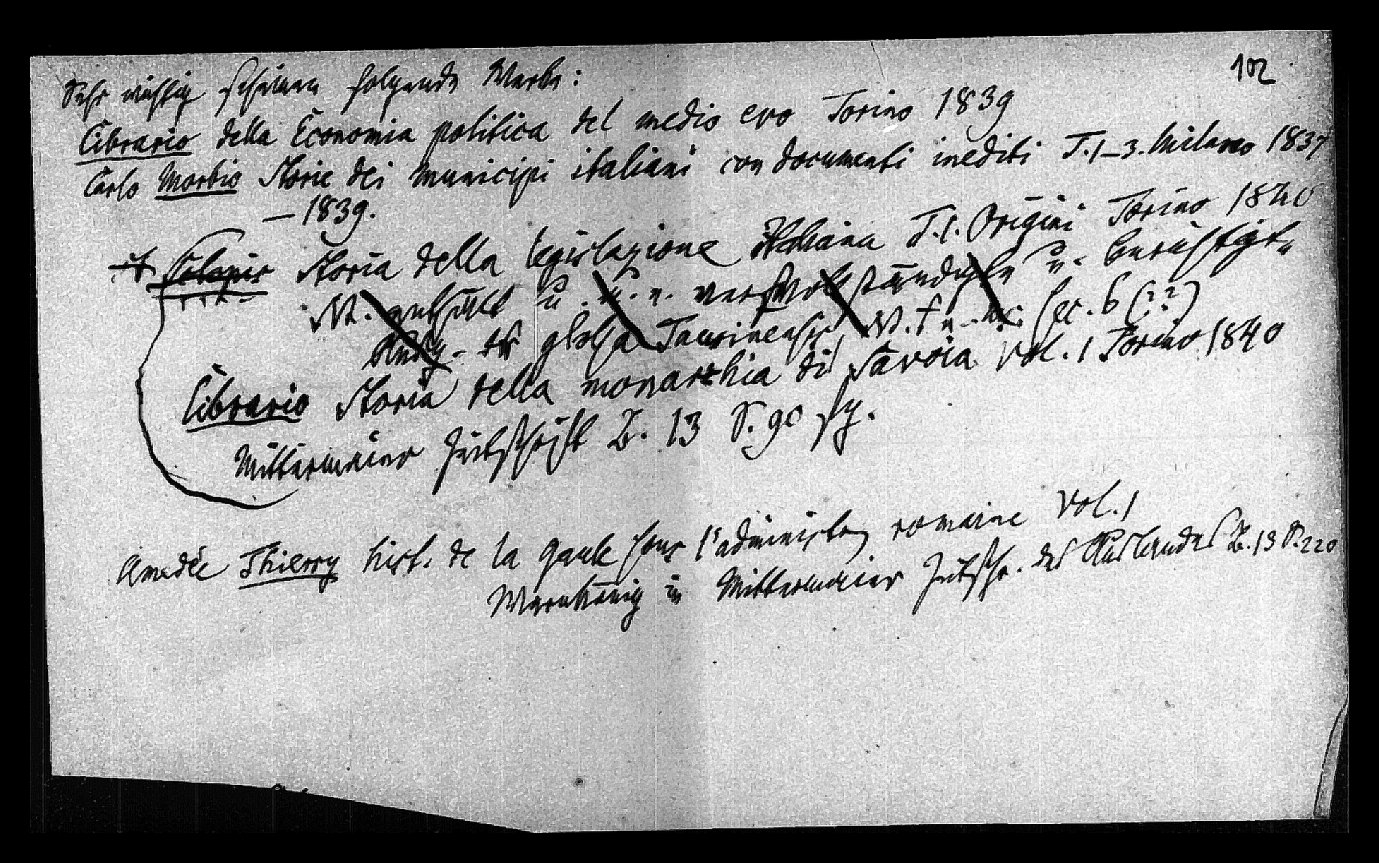 102
Sehr wichtig scheinen folgende Werke:
Cibrario della Economia politica del medio evo Torino 1839
Carlo Morbio Storie dei municipi italiani con documenti inediti T. 1–3. Milano 1837
– 1839.
Sclopis Storia della legislazione Italiana T. 1. Origini Torino 1840
NB. enthält u. a. e. vervollständigte u. berichtigte
Ausg. der glossa Taurinensis, NB. f sec. 6 (??)
Cibrario Storia della monarchia di Savoia Vol. 1 Torino 1840
Mittermaier Zeitschrift B. 13 S. 90 fg.
Amedée Thierry hist. de la gaule sous l'administr romaine Vol. 1
Warnkönig in Mittermaier Zeitschr. des Auslandes B. 13 S. 220